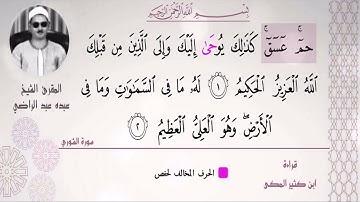 بِسْمِ اللَّهِ الرَّحْمَٰنِ الرَّحِيمِ
حمٓ عٓسٓقٓ كَذَٰلِكَ يُوحَىٰ إِلَيْكَ وَإِلَى الَّذِينَ مِن قَبْلِكَ
اللَّهُ الْعَزِيزُ الْحَكِيمُ ١ لَهُ مَا فِي السَّمَٰوَٰتِ وَمَا فِي
الْأَرْضِ وَهُوَ الْعَلِيُّ الْعَظِيمُ ٢
القارئ الشيخ
عبده عبد الراضي
سورة الشورى
الحرف المخالف لحفص
قراءة
ابن كثير المكي